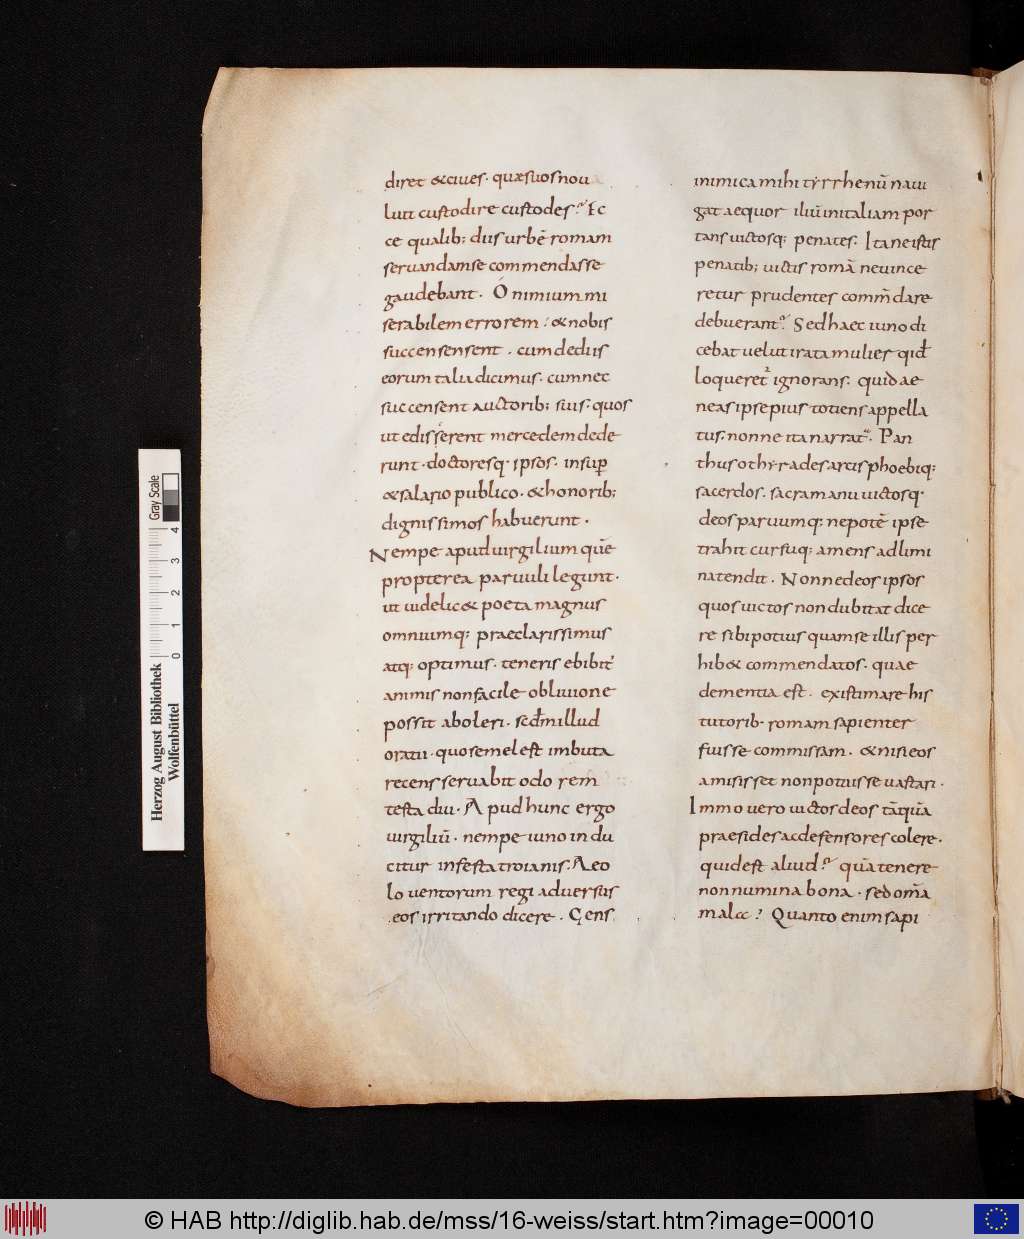 diret &ciues· quaesuosnou
luit custodire custodes? Ec
ce qualib; diis urbē romam
seruandam se commendasse
gaudebant. O nimium mi
serabilem errorem! & nobis
succensent. cum dediis
eorum talia dicimus· cum nec
succensent auctorib; suis; quos
ut edisserent mercedem dede
runt· doctoresq· ipsos· insup̄
& salario publico· & honorib;
dignissimos habuerunt·
Nempe apud uirgilium quē
propterea paruuli legunt·
ut uidelic& poeta magnus
omniumq; praeclarissimus
atq; optimus· teneris ebibit'
animis non facile obliuione
possit aboleri· sedm illud
oratii· quo semel est imbuta
recens seruabit odorem
testa diu· Apud hunc ergo
uirgiliū· nempe iuno indu
citur infesta troianis· Aeo
lo uentorum regi aduersus
eos irritando dicere. Gens
inimica mihi tyrrhenū naui
gat aequor iliū initaliam por
tans uictosq; penates; Ita ne istis
penatib; uictis romā ne uince
retur prudentes comm̄dare
debuerant? Sed haec iuno di
cebat uelut irata mulier qid
loqueret ignorans; quid ae
neas ipse pius totiens appella
tus; nonne ita narrat· Pan
thus othyrades arcis phoebiq;
sacerdos· sacra manu uictosq·
deos paruumq; nepotē ipse
trahit cursuq; amens ad limi
na tendit· Nonne deos ipsos
quos uictos non dubitat dice
re sibi potius quam se illis per
hib& commendatos· quae
dementia est· existimare his
tutorib· romam sapienter
fuisse commissam· & nisi eos
amisisset non potuisse uastari·
Immo uero uictos deos tāquā
praesides ac defensores colere·
quid est aliud? quā tenere
non numina bona· sed om̄a
mala? Quanto enim sapi
Herzog August Bibliothek
Wolfenbüttel
0 1 2 3 4
Gray Scale
© HAB http://diglib.hab.de/mss/16-weiss/start.htm?image=00010